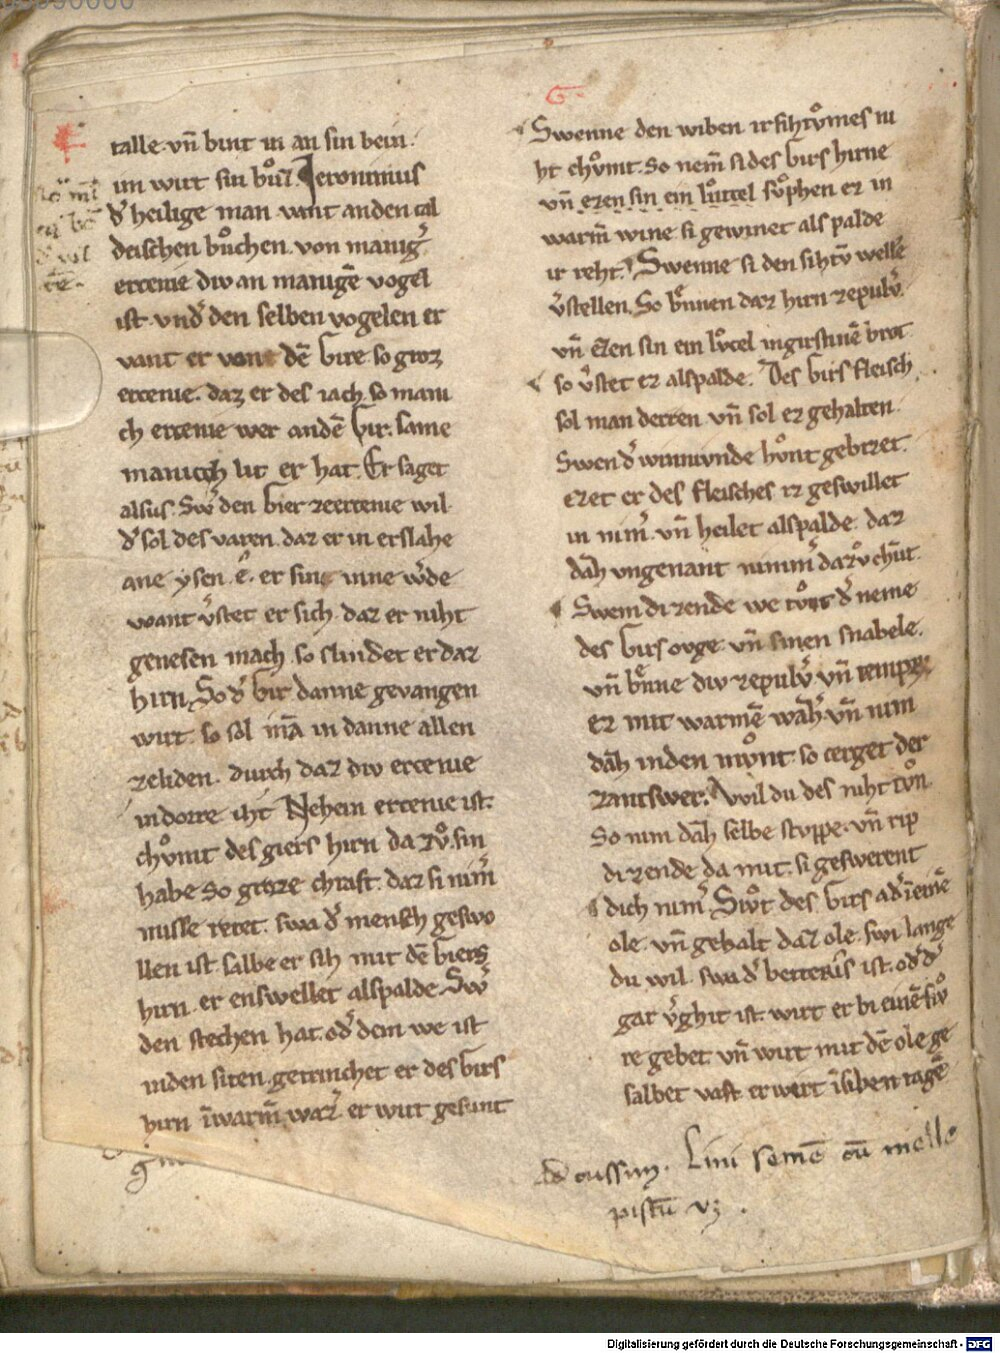 talle. vn̄ bint in an sin bein.
im wirt sin bůz. Jeronimus
d̾ heilige man vant an den cal
deischen bůchen. von manig̾
ercenie diw an manigē vogel
ist. vnd̾ den selben vogelen er
vant er dē bire so groz
ercenie. daz er des iach so mani
ch ercenie wer andē bir. same
manich lit er hat. Er saget
alsus. Sw̾ den bier zeercenie wil
d̾ sol des varen. daz er in erslahe
ane ysen. e. er sin inne w̾de
want v̾stet er sich. daz er niht
genesen mach. so slindet er daz
hirn. So d̾ bir danne gevangen
wirt. so sol mā in danne allen
zeliden. durch daz diw ercenie
in dorre iht. Nehein ercenie ist.
chům̄t des giers hirn da zů. sin
habe so groze chraft. daz si nim̾
musse
swa d̾ mensch geswo
llen ist. salbe er sih mit dē biers
hirn. er enswellet alspalde. Sw̾
den stechen hat. od̾ dem we ist
inden siten. getrinchet er des birs
hirn īwarm̄ waz̾ er wirt gesunt
G.
Swenne den wiben ir sihtv̊mes ni
ht chv̊mt. So nem̄ si des birs hirne
vn̄ ezen sin ein lůtcel sv̊phen ez in
warm̄ wine si gewinet als palde
ir reht. Swenne si den sihtv̄ welle
v̾stellen. So bn̄nen daz hirn zepulv̾.
vn̄ ezen sin ein lv̊cel in girstinē brot.
so v̾stet ez alspalde. Des birs fleisch
sol man derren vn̄ sol ez gehalten.
Swen d̾ winnivnde hv̊nt gebizet.
ezet er des fleisches iz geswillet
in nim̾. vn̄ heilet alspalde. daz
dāh vngenant nimm̾ dazv̊ chūt.
Swem di zende we tv̊nt d̾ neme
des birs ovge vn̄ sinen snabele.
vn̄ bn̄ne diw zepulv̾ vn̄ temper
ez mit warmē waz̾ vn̄ nim
dāh inden mv̊nt. so cerget der
zantswer. Wil du des niht tv̊n.
So nim dāh selbe stuppe. vn̄ rip
di zende da mit. si geswerent
dich nim̾. Siv̊t des birs ad̾ ī einē
ole. vn̄ gehalt daz ole. swi lange
du wil. swa d̾ betteris ist. od̾ d̾
gar v̾giht ist. wirt er bi einē fiv̊
re gebet vn̄ wirt mit dē ole ge
salbet vast er wert ī siben tagē
Ad tussim. Lini semē cū melle
pistū